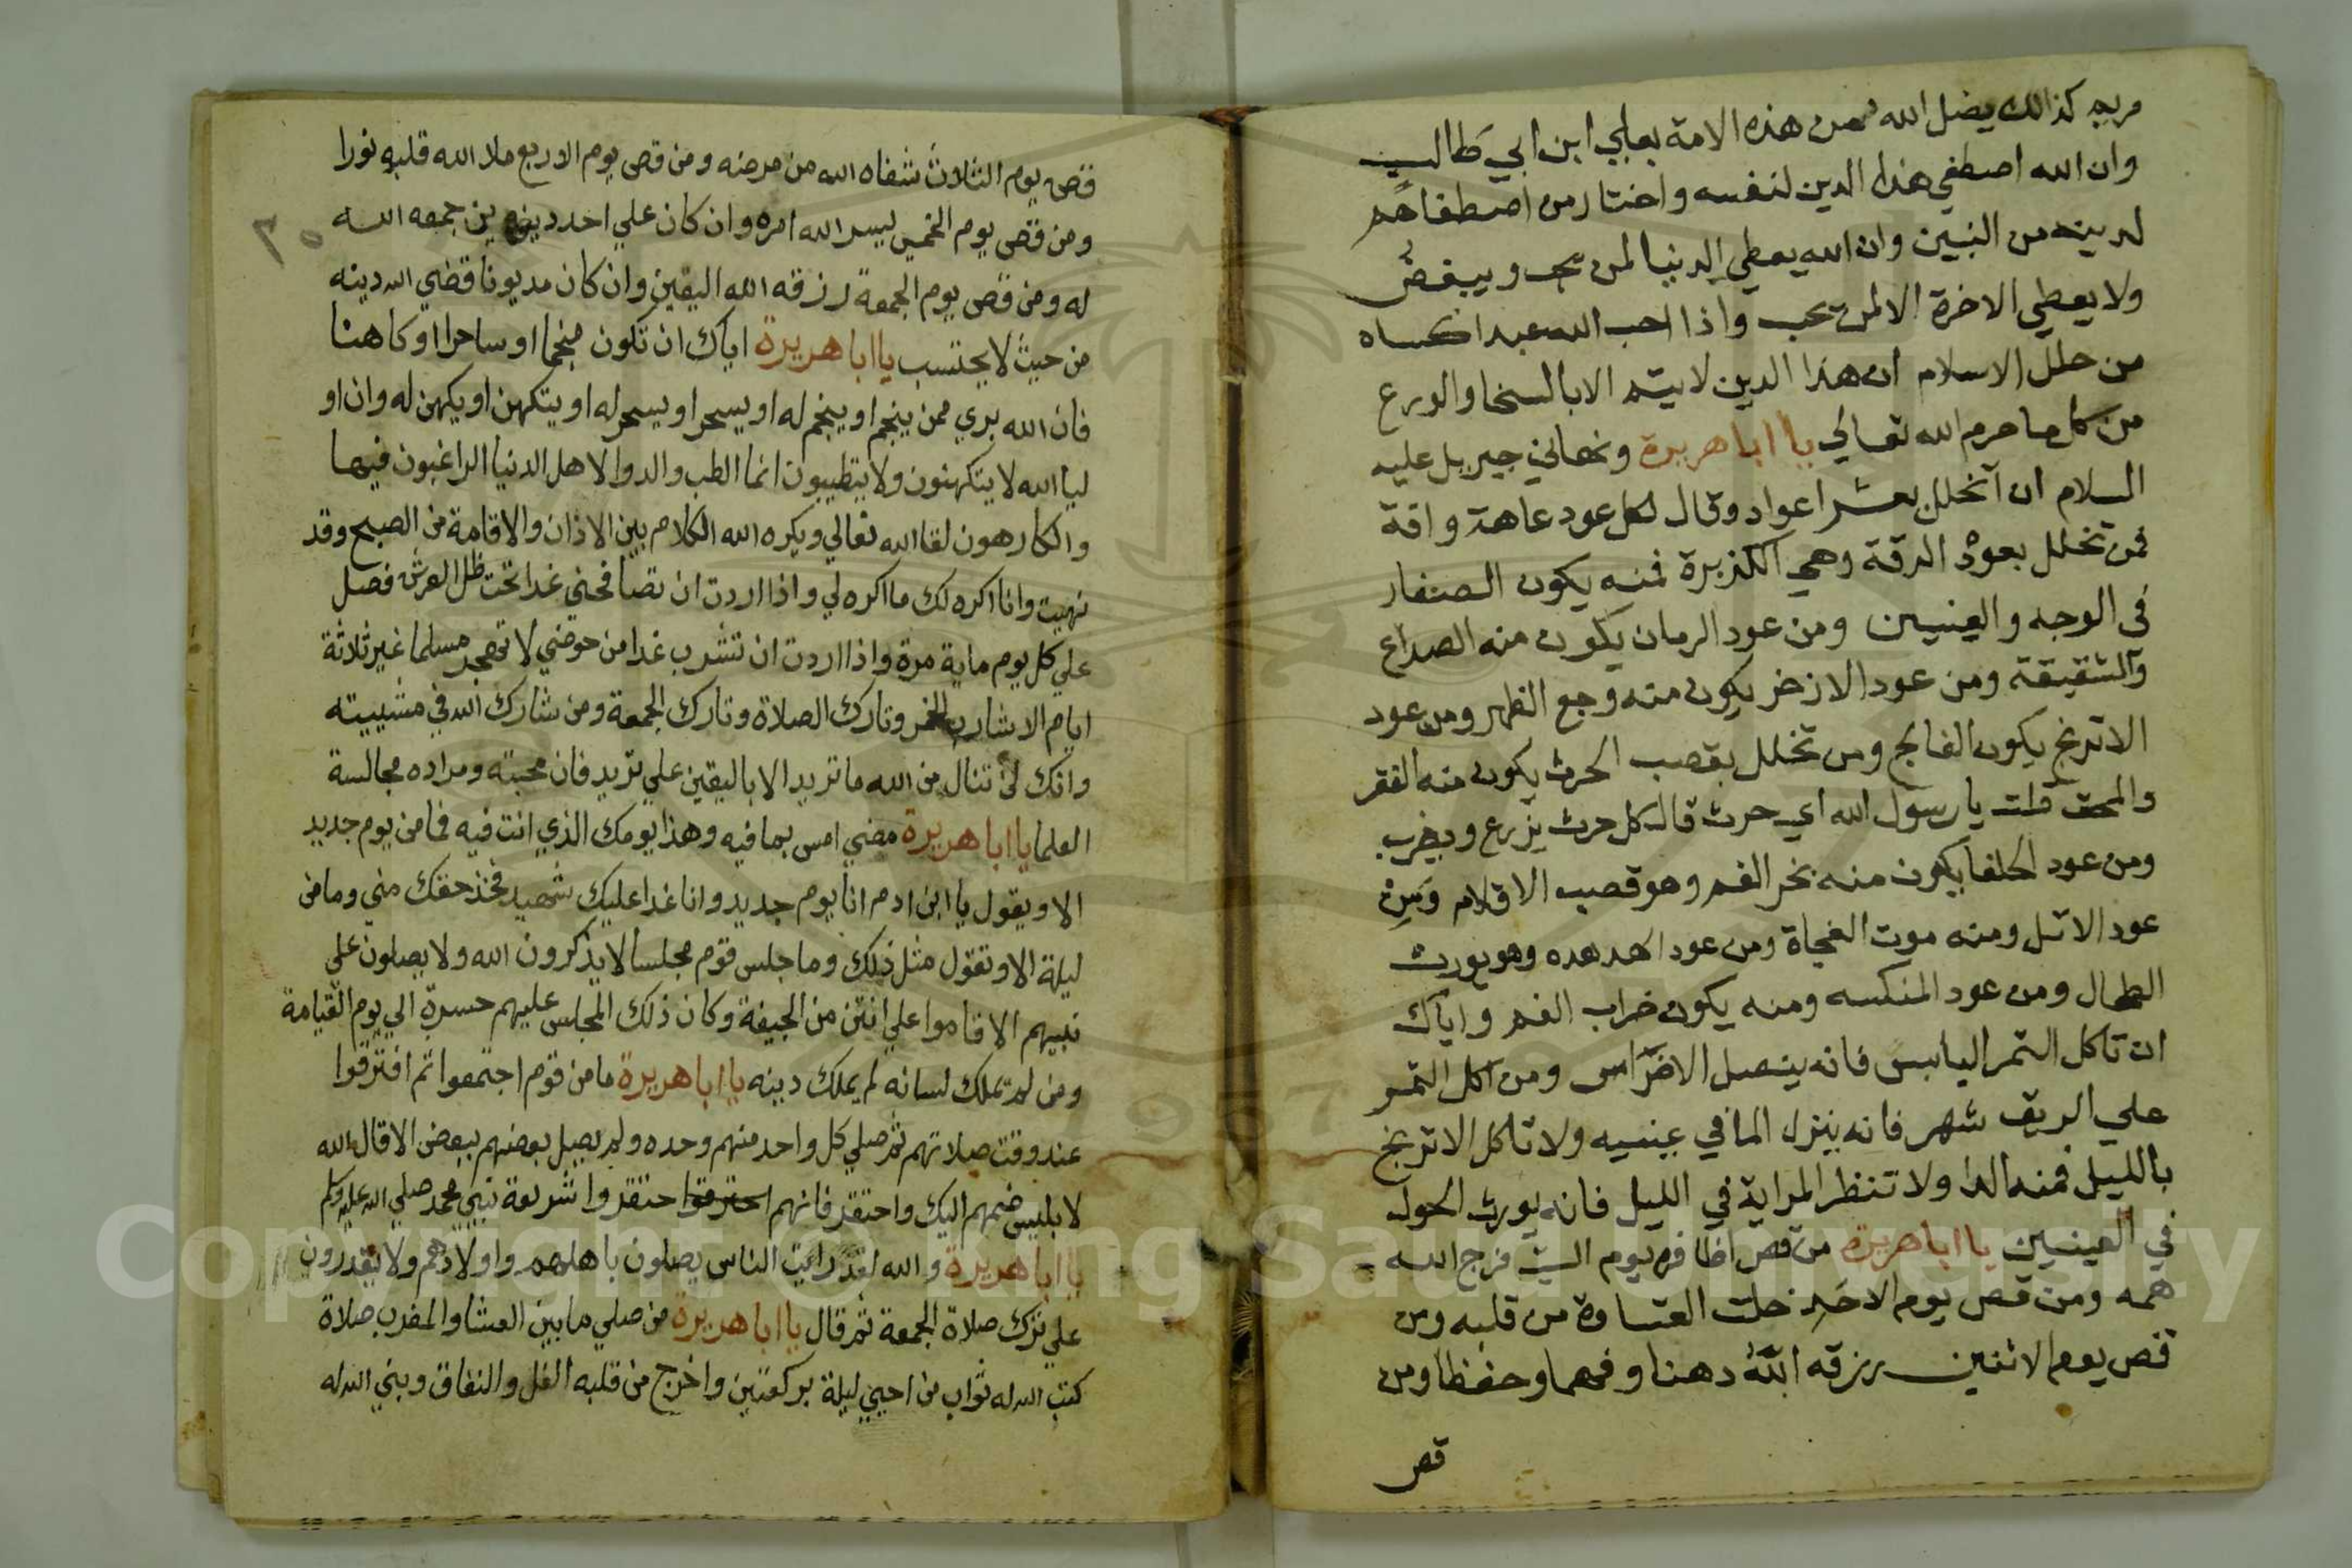 مريم كذالك يضل الله من هذه الامة بعلي ابن ابي طالب
وان الله اصطفي هذا الدين لنفسه واختار من اصطفاهم
لدينه من النبين وان الله يعطي الدنيا لمن يحب ويبغض
ولا يعطي الاخرة الا لمن يحب واذا احب الله عبدا كساه
من حلل الاسلام ان هذا الدين لا يتم الا بالسخا والورع
من كل ما حرم الله تعالي يا ابا هريرة ونهاني جبريل عليه
السلام ان اتخلل بعشر اعواد وقال لكل عود عاهة وافة
فمن تخلل بعود الدقة وهي الكزبرة فمنه يكون الصفار
في الوجه والعينين ومن عود الرمان يكون منه الصداع
والشقيقة ومن عود الازخر يكون منه وجع الظهر ومن عود
الاترنج يكون الفالج ومن تخلل بقصب الحرث يكون منه الفقر
والمحق قلت يا رسول الله اي حرث قال كل حرث يزرع ويضرب
ومن عود الحلفا يكون منه بخر الفم وهو قصب الاقلام ومن
عود الاثل ومنه موت الفجاة ومن عود الهدهده وهو يورث
الطحال ومن عود المنكسه ومنه يكون خراب الفم واياك
ان تاكل التمر اليابس فانه ينصل الاضراس ومن اكل التمر
علي الريق شهر فانه ينزل الما في عينيه ولا تاكل الاترنج
بالليل فمنه الدا ولا تنظر المراية في الليل فانه يورث الحول
في العينين يا ابا هريرة من قص اظافره يوم السبت فرج الله
همه ومن قص يوم الاحد خلت القساوة من قلبه ومن
قص يوم الاثنين رزقه الله دهنا وفهما وحفظا ومن
قص
قص يوم الثلاث شفاه الله من مرضه ومن قص يوم الاربع ملا الله قلبه نورا
ومن قص يوم الخميس ليسر الله امره وان كان علي احد دينه جمعه الله
له ومن قص يوم الجمعة رزقه الله اليقين وان كان مديونا قضي الله دينه
من حيث لا يحتسب يا ابا هريرة اياك ان تكون منجما او ساحرا او كاهنا
فان الله بري ممن ينجم او ينجم له او يسحر او يسحر له او يتكهن او يكهن له وان او
ليا الله لا يتكهنون ولا يتطيبون انما الطب والدوا لاهل الدنيا الراغبون فيها
والكارهون لقا الله تعالي ويكره الله الكلام بين الاذان والاقامة من الصبح وقد
نهيت وانا اكره لك ما اكره لي واذا اردت ان تصافحني غدا تحت ظل العرش فصل
علي كل يوم ماية مرة واذا اردت ان تشرب غدا من حوضي لا تهجر مسلما غير ثلاثة
ايام الا شارب الخمر وتارك الصلاة وتارك الجمعة ومن شارك الله في مشييته
وانك لن تنال من الله ما تريد الا باليقين علي تريد فان محبته ومراده مجالسة
العلما يا ابا هريرة مضي امس بما فيه وهذا يومك الذي انت فيه فما من يوم جديد
الا ويقول يا ابن ادم انا يوم جديد وانا غدا عليك شهيد فخذ حقك مني وما من
ليلة الا وتقول مثل ذلك وما جلس قوم مجلسا لا يذكرون الله ولا يصلون علي
نبيهم الا قاموا علي انتن من الجيفة وكان ذلك المجلس عليهم حسرة الي يوم القيامة
ومن لم يملك لسانه لم يملك دينه يا ابا هريرة ما من قوم اجتمعوا ثم افترقوا
عند وقت صلاتهم ثم صلي كل واحد منهم وحده ولم يصل بعضهم ببعض الا قال الله
لابليس ضمهم اليك واحتقر فانهم احتقروا شريعة نبيي محمد صلي الله عليه وسلم
يا ابا هريرة والله لقد رايت الناس يصلون باهلهم واولادهم ولا يقدرون
علي ترك صلاة الجمعة ثم قال يا ابا هريرة من صلي ما بين العشا والمغرب صلاة
كتب الله له ثواب من احيي ليلة بركعتين واخرج من قلبه الغل والنفاق وبني الله له
Copyright © King Saud University
1957